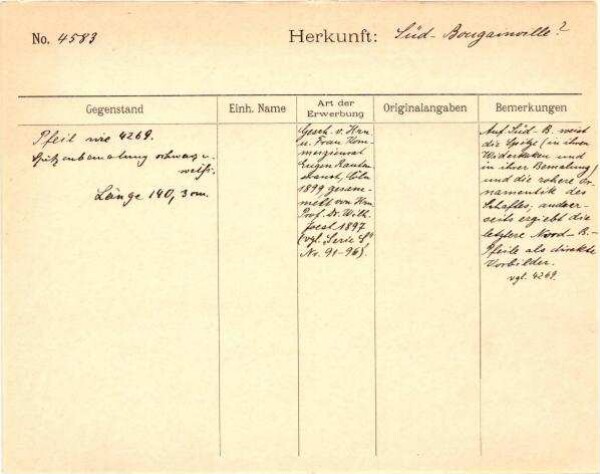 No. 4583
Herkunft: Süd-Bougainville?
Gegenstand
Einh. Name
Art der Erwerbung
Originalangaben
Bemerkungen
Pfeil wie 4269.
Spitzenbemalung schwarz u.
weiß.
Länge 140,3 cm.
Gesch. v. Hrn
u. Frau Kom-
merzienrat
Eugen Rauten
strauch, Cöln
1899 gesam-
melt von Hrn
Prof. Dr. Wilh.
Joest 1897
(vgl. Serie
No. 91-96).
Auf Süd-B. weist
die Spitze (in ihren
Widerhaken und
in ihrer Bemalung)
und die rohere Or-
namentik des
Schaftes, andrer-
seits ergiebt die
letztere Nord-B.-
Pfeile als direkte
Vorbilder.
vgl. 4269.